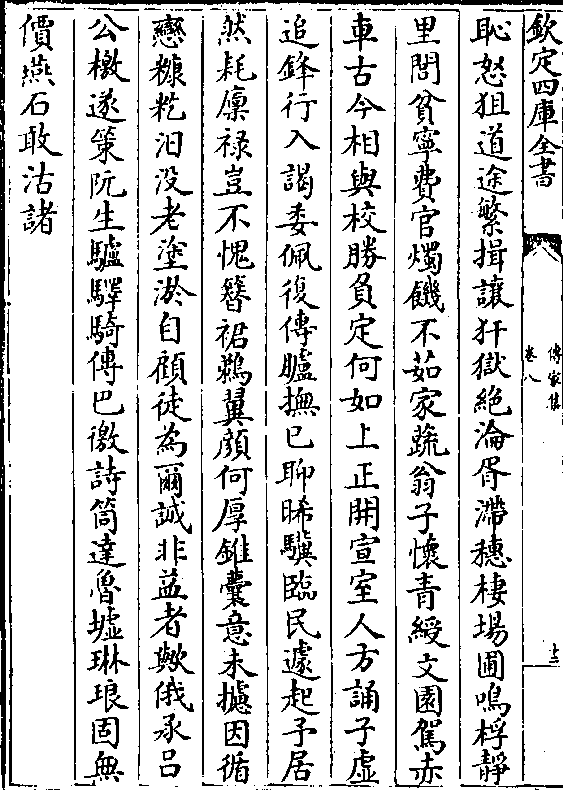 欽定四庫全書
傳家集
卷八
十二
恥怒狙道途繁揖讓犴獄絶淪胥滯穗棲場圃鳴桴靜
里閭貧寧費官燭饑不茹家蔬翁子懷青綬文園駕赤
車古今相與校勝負定何如上正開宣室人方誦子虛
追鋒行入謁委佩復傳臚撫已聊晞驥臨民遽起予居
然耗廩禄豈不愧簪裾鵜翼顔何厚錐囊意未攄因循
戀糠籺汩没老塗淤自顧徒為爾誠非益者歟俄承吕
公檄遂策阮生驢驛騎傳巴徼詩筒達魯墟琳琅固無
價燕石敢沽諸